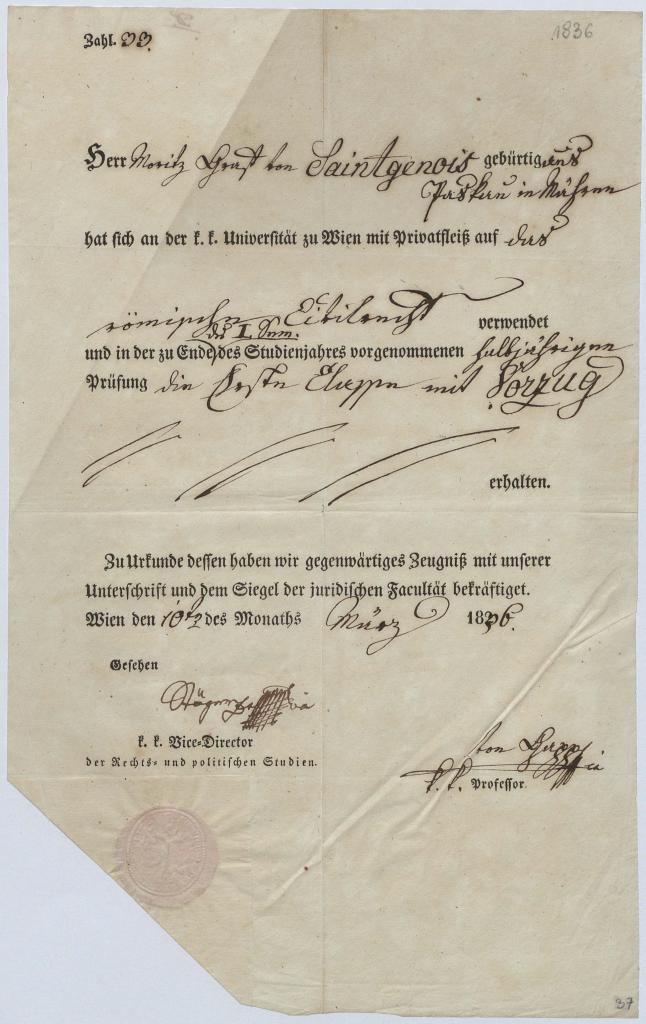 Zahl. 33.
1836
Herr Moritz Graf von Saintgenois gebürtig aus
Paskau in Mähren
hat sich an der k. k. Universität zu Wien mit Privatfleiß auf das
römische Civilrecht verwendet
des I. Sem.
und in der zu Ende des Studienjahres vorgenommenen halbjährigen
Prüfung die Erste Classe mit Vorzug
erhalten.
Zu Urkunde dessen haben wir gegenwärtiges Zeugniß mit unserer
Unterschrift und dem Siegel der juridischen Facultät bekräftiget.
Wien den 10t des Monaths März 1836.
Gesehen
k. k. Vice-Director
der Rechts- und politischen Studien.
von
k. k. Professor.
37